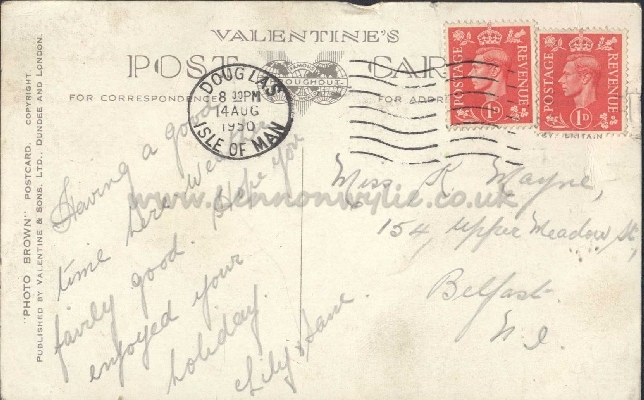 VALENTINE'S
POST CARD
FOR CORRESPONDENCE
FOR ADDR
DOUGLAS
8 PM
14 AUG
1950
ISLE OF MAN
POSTAGE REVENUE
1D
POSTAGE REVENUE
1D
BRITAIN
"PHOTO BROWN" POSTCARD. COPYRIGHT.
PUBLISHED BY VALENTINE & SONS, LTD., DUNDEE AND LONDON.
Having a good
time here. Weather
fairly good. Hope you
enjoyed your
holiday.
Lily &
Miss R. Mayne,
154, Upper Meadow St,
Belfast.
N.I.
www.lennonwylie.co.uk